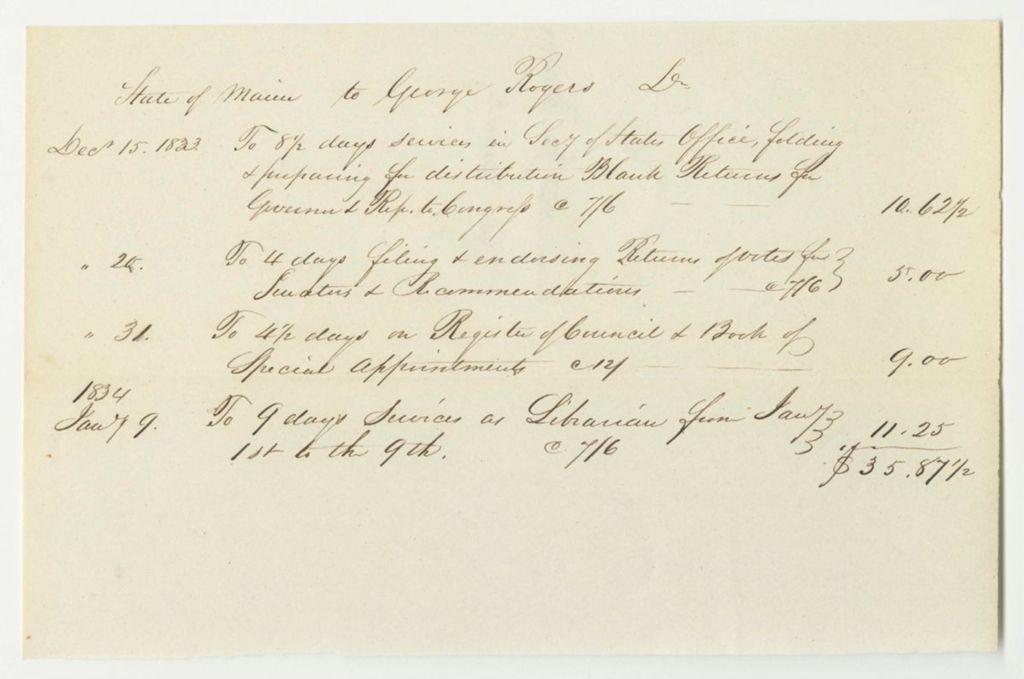 State of Maine to George Rogers Dr
Decr 15. 1833. To 8 1/2 days services in Secy of States Office, folding
& preparing for distribution Blank Returns for
Governor & Rep. to Congress @ 7/6 — — 10.62 1/2
" 20. To 4 days filing & endorsing Returns of votes for
Senators & Recommendations — — @ 7/6 } 5.00
" 31. To 4 1/2 days on Register of Council & Book of
Special Appointments @ 12/ — — 9.00
1834
Jany 9. To 9 days services as Librarian from Jany
1st to the 9th. @ 7/6 } 11.25
$35.87 1/2